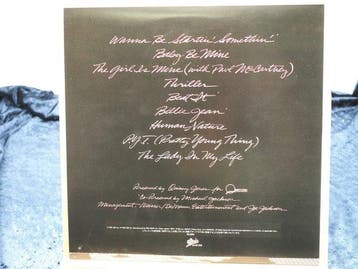 Wanna Be Startin' Somethin'
Baby Be Mine
The Girl Is Mine (with Paul McCartney)
Thriller
Beat It
Billie Jean
Human Nature
P.Y.T. (Pretty Young Thing)
The Lady In My Life
Produced by Quincy Jones for
Co-Produced by Michael Jackson
Management: Weisner/DeMann Entertainment and Joe Jackson